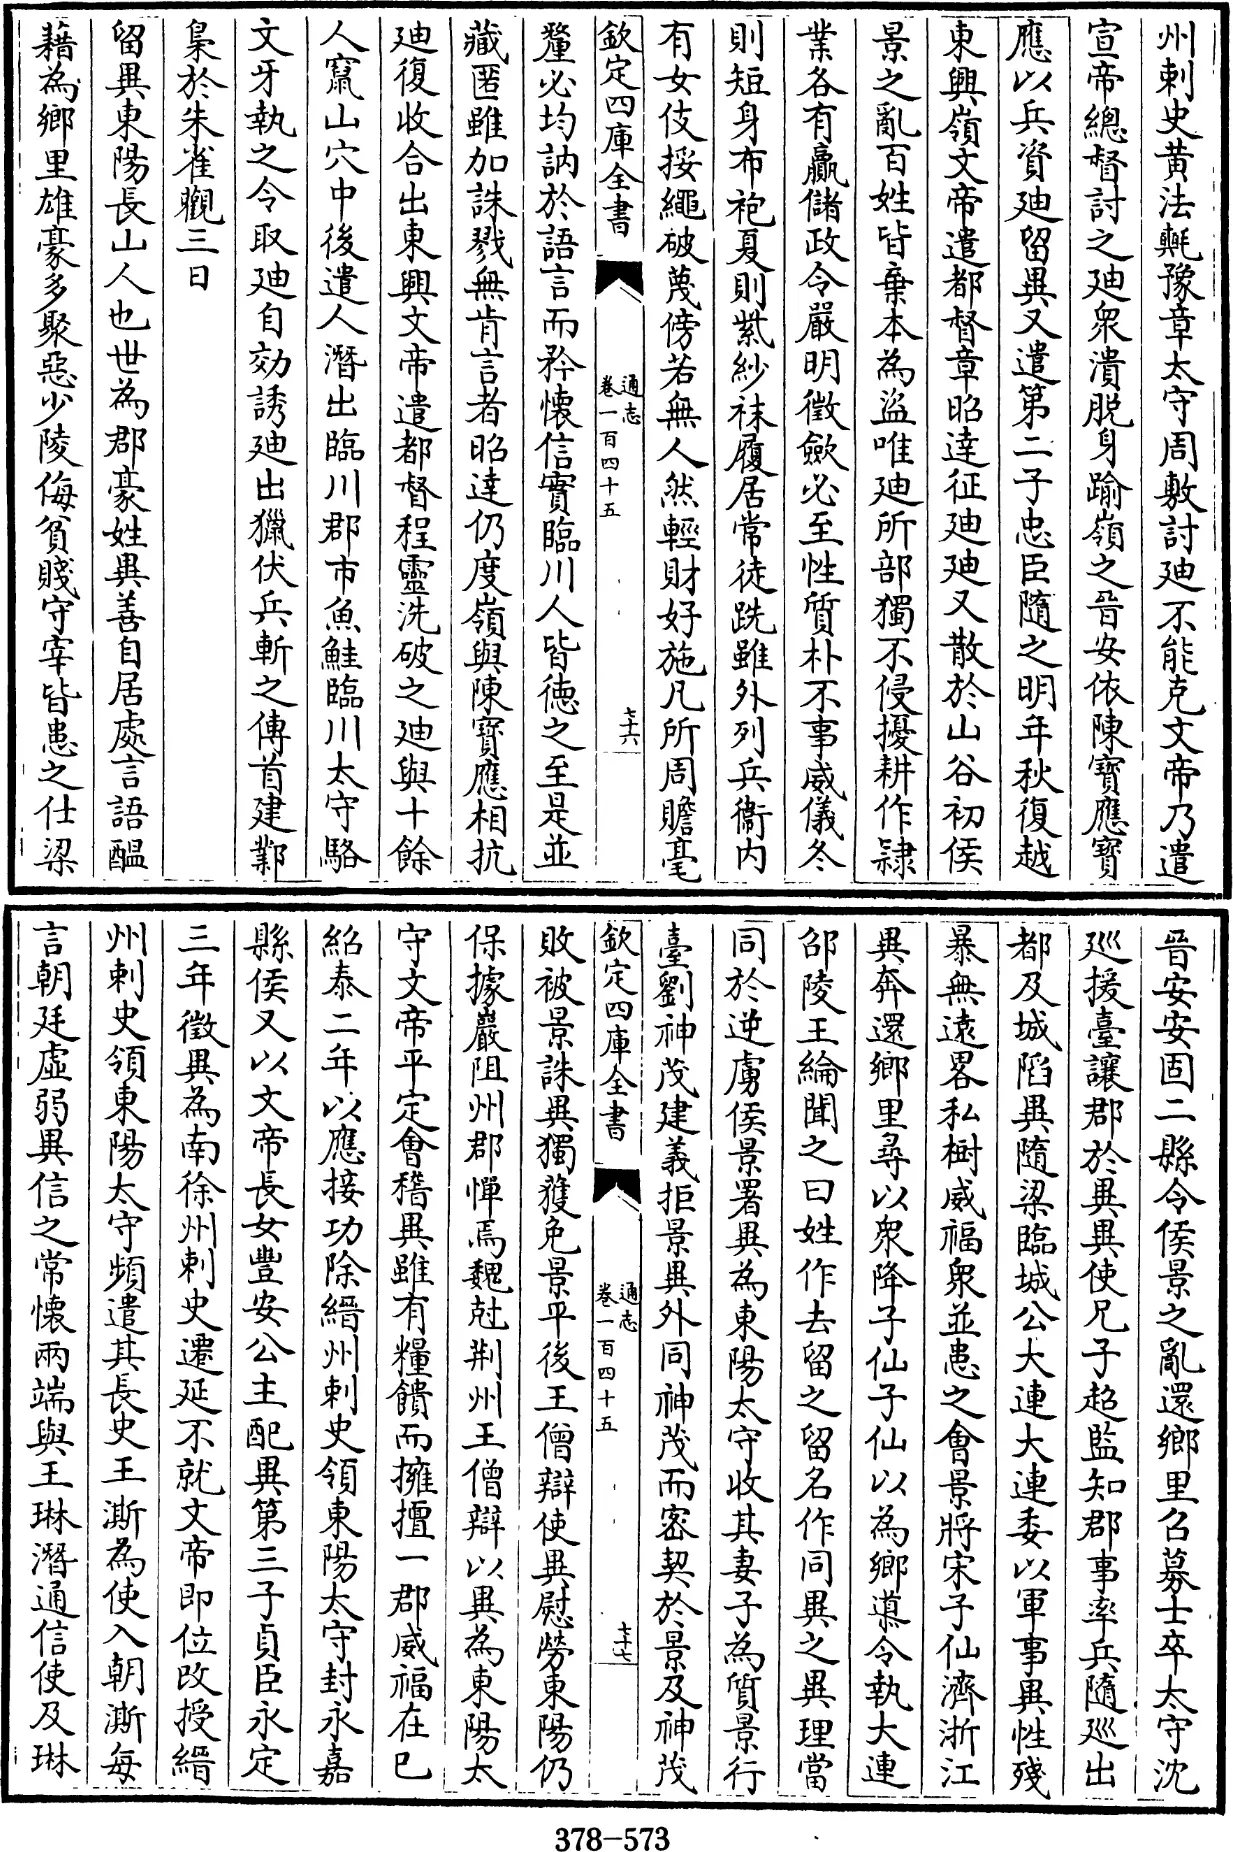 州刺史黄法𣰋豫章太守周敷討廸不能克文帝乃遣
宣帝總督討之廸衆潰脱身踰嶺之晉安依陳寶應寶
應以兵資廸留異又遣第二子忠臣隨之明年秋復越
東興嶺文帝遣都督章昭達征廸廸又散於山谷初侯
景之亂百姓皆棄本為盜唯廸所部獨不侵擾耕作肄
業各有贏儲政令嚴明徵歛必至性質朴不事威儀冬
則短身布袍夏則紫紗袜履居常徒跣雖外列兵衞内
有女伎挼繩破篾傍若無人然輕財好施凡所周贍毫
欽定四庫全書
通志
卷一百四十五
七十六
釐必均訥於語言而矜懐信實臨川人皆徳之至是並
藏匿雖加誅戮無肯言者昭達仍度嶺與陳寶應相抗
廸復收合出東興文帝遣都督程靈洗破之廸與十餘
人竄山穴中後遣人潛出臨川郡市魚鮭臨川太守駱
文牙執之令取廸自効誘廸出獵伏兵斬之傳首建鄴
梟於朱雀觀三日
留異東陽長山人也世為郡豪姓異善自居處言語醖
藉為鄉里雄豪多聚惡少陵侮貧賤守宰皆患之仕梁
晉安安固二縣令侯景之亂還鄉里召募士卒太守沈
巡援臺讓郡於異異使兄子超監知郡事率兵隨巡出
都及城陷異隨梁臨城公大連大連委以軍事異性殘
暴無遠畧私樹威福衆並患之會景將宋子仙濟浙江
異奔還鄉里尋以衆降子仙子仙以為鄉導令執大連
邵陵王綸聞之曰姓作去留之留名作同異之異理當
同於逆虜侯景署異為東陽太守收其妻子為質景行
臺劉神茂建義拒景異外同神茂而密契於景及神茂
欽定四庫全書
通志
卷一百四十五
七十七
敗被景誅異獨獲免景平後王僧辯使異慰勞東陽仍
保據巖阻州郡憚焉魏尅荆州王僧辯以異為東陽太
守文帝平定會稽異雖有糧饋而擁擅一郡威福在已
紹泰二年以應接功除縉州刺史領東陽太守封永嘉
縣侯又以文帝長女豐安公主配異第三子貞臣永定
三年徵異為南徐州刺史遷延不就文帝即位改授縉
州刺史領東陽太守頻遣其長史王澌為使入朝澌每
言朝廷虛弱異信之常懐兩端與王琳潛通信使及琳
378-573